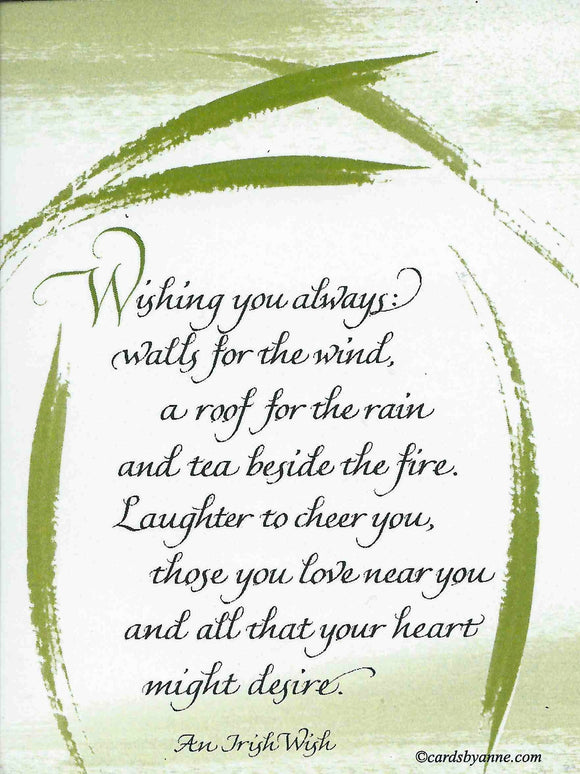 Wishing you always:
walls for the wind,
a roof for the rain
and tea beside the fire.
Laughter to cheer you,
those you love near you
and all that your heart
might desire.
An Irish Wish
©cardsbyanne.com